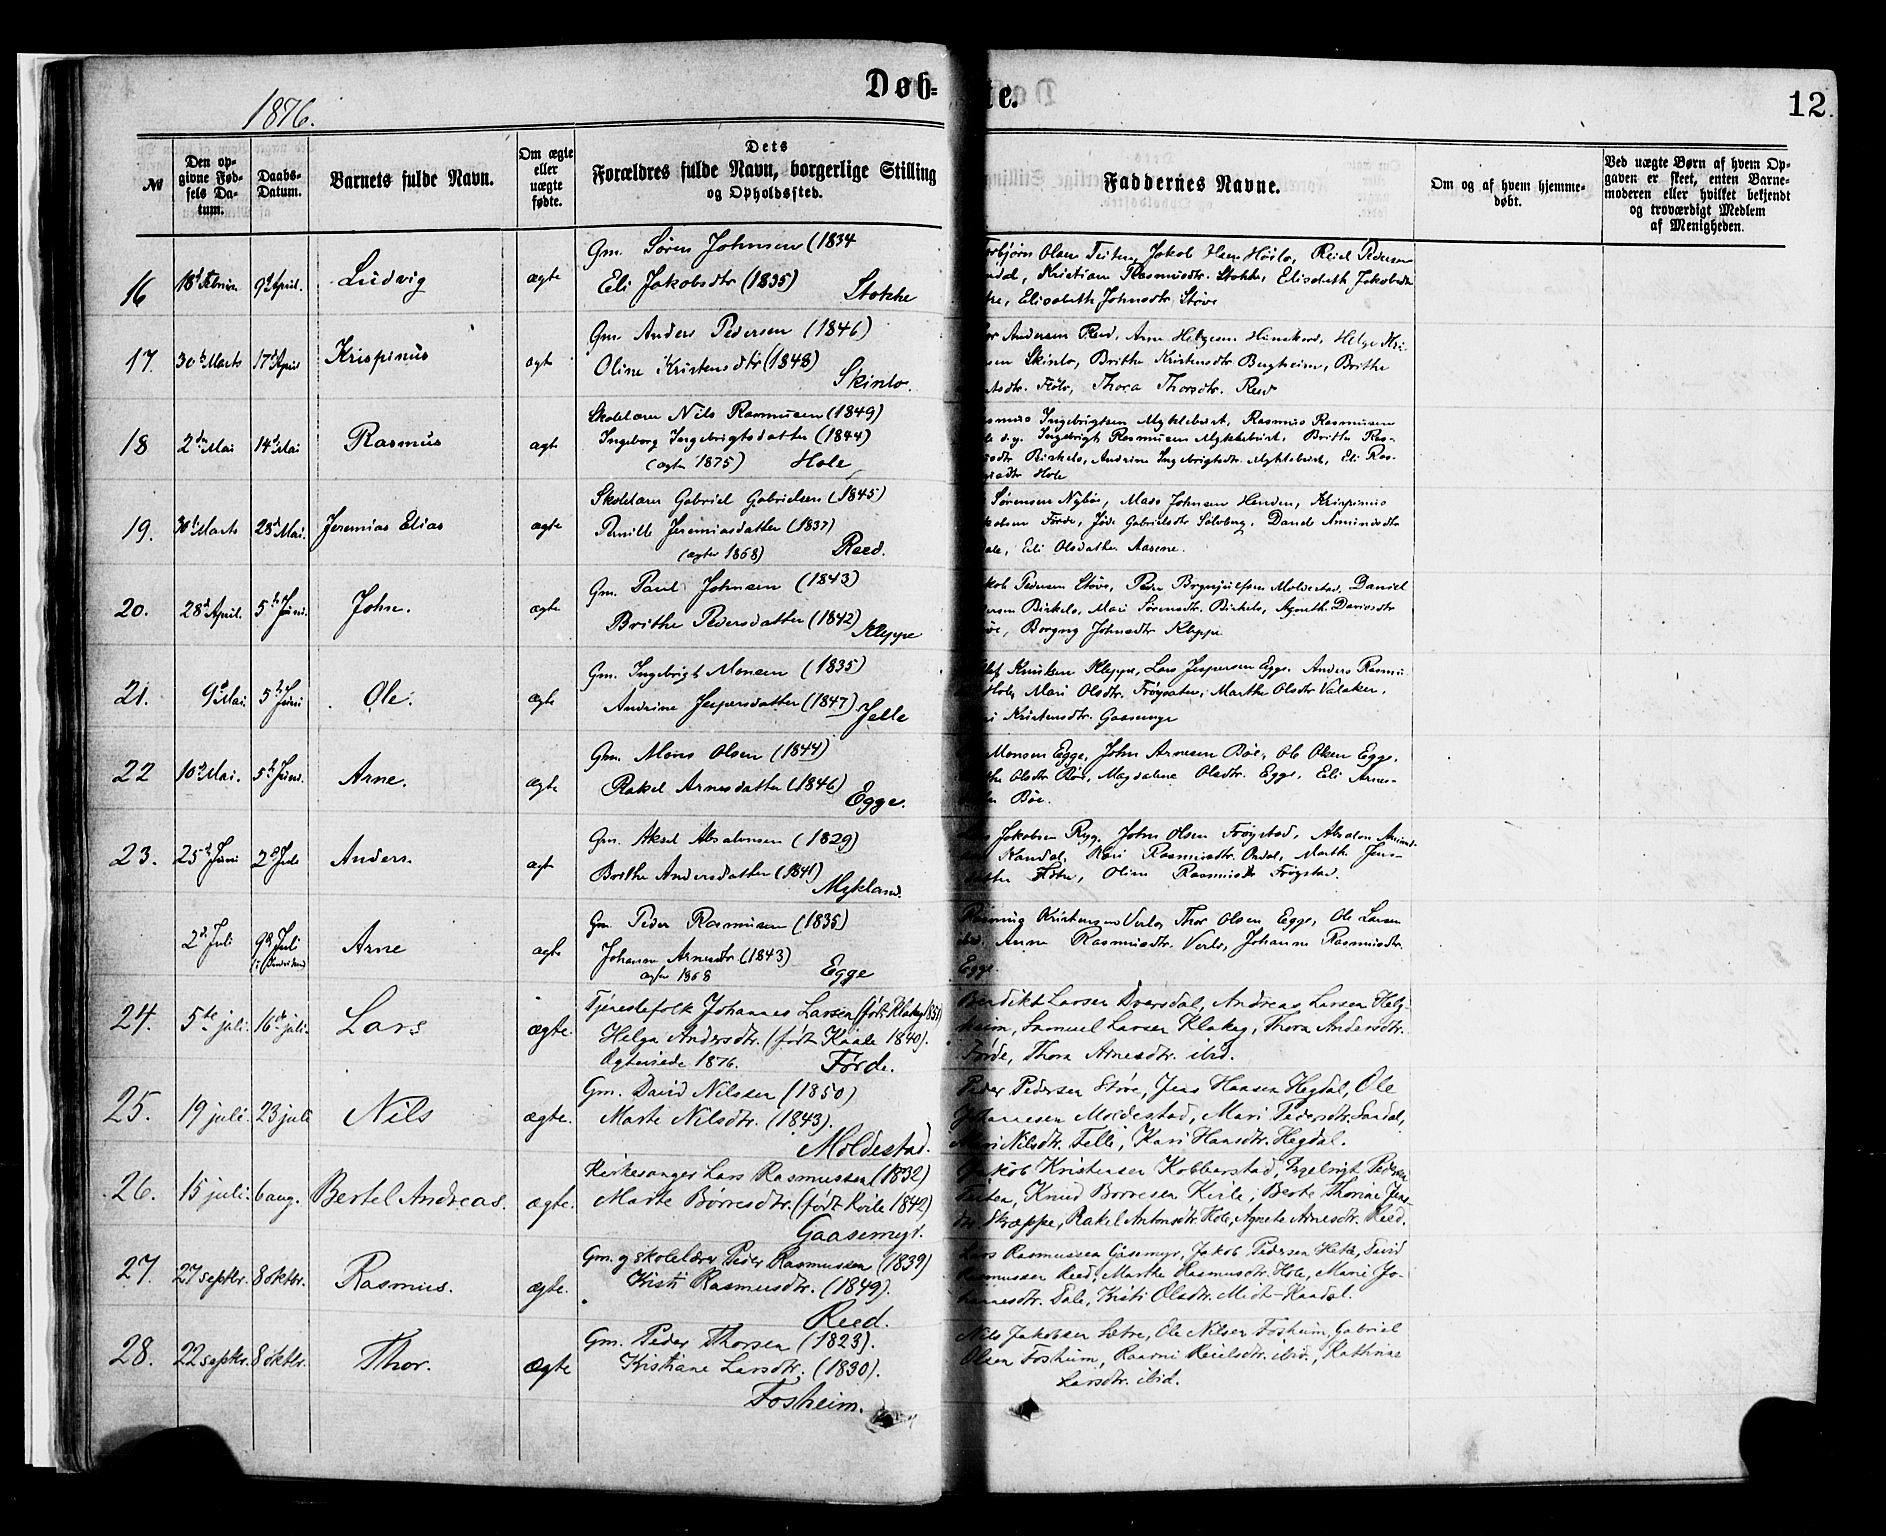 1876.
Døb=
te.
12.
№
Den op-
givne Fød-
sels Da-
tum.
Daabs-
Datum.
Barnets fulde Navn.
Om ægte
eller
uægte
fødte.
Dets
Forældres fulde Navn, borgerlige Stilling
og Opholdssted.
Faddernes Navne.
Om og af hvem hjemme-
døbt.
Ved uægte Børn af hvem Op-
gaven er skeet, enten Barne-
moderen eller hvilket bekjendt
og troværdigt Medlem
af Menigheden.
16 9d April. Ludvig ægte
Gm. Søren Johnsen (1834
Eli Jakobsdtr (1835)
Stokke
Olsen Teiten, Jakob Reiel Pedersen
Kristian Rasmusdtr. Stokke, Elisabeth Jakobsdtr
Elisabeth Johnsdtr. Støve
17. 30te Marts 17d April Krispinus ægte
Gm. Anders Pedersen (1846)
Oline Kristensdtr (1848)
Skinlo.
Andersen Reed, Arne Helgesen Helge Kri-
sen Skinlo, Brithe Kristensdtr Bergheim, Brithe
Thora Thorsdtr. Reed
18 2den Mai 14d Mai Rasmus ægte
Skolelærer Nils Rasmusen (1849)
Ingeborg Ingebrigtsdatter (1844)
(ægte 1875) Hole
Ingebrigtsen Myklebust, Rasmus Rasmusen
d.y. Ingebrigt Rasmusen Myklebust, Brithe Ras-
Birkelo, Andrine Ingebrigtsdtr. Myklebust, Eli Ras-
Hole
19. 30te Marts 28d Mai. Jeremias Elias ægte
Skolelærer Gabriel Gabrielsen (1845)
Pernille Jeremiasdatter (1837)
(ægte 1868) Reed.
Sørensen Nybøe, Mads Johnsen Henden, Krispinus
Førde, Gabrielsdtr Sølvberg,
Eli Olsdatter Aasene.
20. 28d April. 5te Juni. John. ægte
Gm. Paul Johnsen (1843)
Brithe Pedersdatter (1842) Kleppe
Pedersen Støve, Peder Moldestad, Daniel
Birkelo, Mari Sørensdtr. Birkelo, Agnethe
Borgny Johnsdtr Kleppe
21. 9d Mai. 5te Juni Ole. ægte
Gm. Ingebrigt Monsen (1835)
Andrine Jespersdatter (1847) Felle
Knutsen Kleppe, Lars Jespersen Egge. Anders Rasmu-
Hole, Mari Olsdtr. Marthe Olsdtr Valaker,
Kristensdtr. Gaasemyr
22 10d Mai. 5te Juni. Arne. ægte
Gm. Mons Olsen (1844)
Rakel Arnesdatter (1846)
Egge.
Monsen Egge, John Arnesen Bøe, Ole Olsen Egge,
Olsdtr Bøe, Magdalene Olsdtr. Egge, Eli Arnes-
Bøe.
23. 25d Juni 2d Juli Anders. ægte
Gm. Aksel Absalonsen (1829)
Brithe Andersdatter (1841)
Mykland.
Jakobsen Ryg, John Olsen Frøystad, Absalon
Kandal, Kari Rasmusdtr. Ordal, Marthe Jens-
datter Oline Rasmusdtr Frøystad.
2d Juli 9d Juli Arne ægte
Gm. Peder Rasmusen (1835)
Johanne Arnesdtr (1843)
ægte 1868 Egge
Kristensen Verlo, Thor Olsen Egge, Ole Larsen
Anne Rasmusdtr. Verlo, Johanne Rasmusdtr.
Egge.
24. 5te juli. 16de juli. Lars ægte.
Tjenestefolk Johannes Larsen (født Klakeg
Helga Andersdtr. (født Kaale 1840).
Ægteviede 1876. Førde.
Bendikt Larsen Dversdal, Andreas Larsen Helg-
heim, Samuel Larsen Klakeg, Thora Andersdtr.
Førde, Thora Arnesdtr. ibid.
25. 19 juli. 23 juli Nils ægte.
Gm. David Nilssen (1850)
Marte Nilsdtr. (1843).
Moldestad.
Peder Pedersen Støve, Jens Hansen Hegdal, Ole
Johannesen Moldestad, Mari Pedersdtr. Sandal,
Mari Nilsdtr. Felle, Kari Hansdtr. Hegdal.
26. 15 juli. 6 aug. Bertel Andreas. ægte.
Kirkesanger Lars Rasmussen (1832)
Marte Børresdtr. (født Kvile 1842)
Gaasemyr.
Jakob Kristensen Kobberstad, Ingebrigt Pedersen
Teiten, Knud Børresen Kvile, Berte Thorine Jens-
dtr. Skreppe, Rakel Antonsdtr. Hole, Agnete Arnesdtr. Reed.
27. 27 septbr. 8 oktbr. Rasmus. ægte.
Gm. og skolelærer Peder Rasmussen (1839)
Kristi Rasmusdtr. (1849).
Reed.
Lars Rasmussen Gåsemyr, Jakob Pedersen
Rasmussen Reed, Marthe Rasmusdtr. Hole, Marie Jo-
hannesdtr. Dale, Kristi Olsdtr. Midt-Kandal.
28. 22 septbr. 8 oktbr. Thor. ægte
Gm. Peder Thorsen (1823).
Kristiane Larsdtr. (1830).
Fosheim.
Nils Jakobsen Sætre, Ole Nilsen Fosheim, Gabriel
Olsen Fosheim, Reielsdtr. ibid., Kathrine
Larsdtr. ibid.